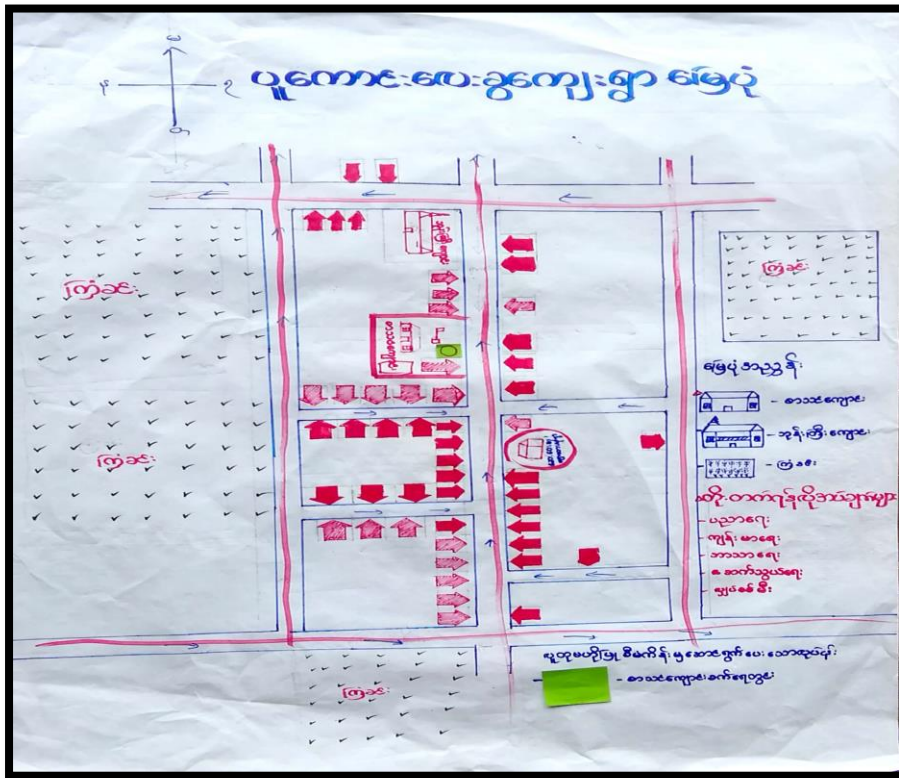 မ
န
ဒ
ပူကောင်းလေးခွကျေးရွာ မြေပုံ
ဘုန်းကြီးကျောင်း
ကြံခင်း
ကြံခင်း
ကြံခင်း
မြေပုံအညွှန်း
- စာသင်ကျောင်း
- ဘုန်းကြီးကျောင်း
- ကြံခင်း
တိုးတက်ရန်လိုအပ်ချက်များ
- ပညာရေး
- ကျန်းမာရေး
- ဘာသာရေး
- ဆက်သွယ်ရေး
- လျှပ်စစ်မီး
လူထုဗဟိုပြု စီမံကိန်းမှဆောင်ရွက်ပေးသောလုပ်ငန်း
- စာသင်ကျောင်းစက်ရေတွင်း
ကြံခင်း